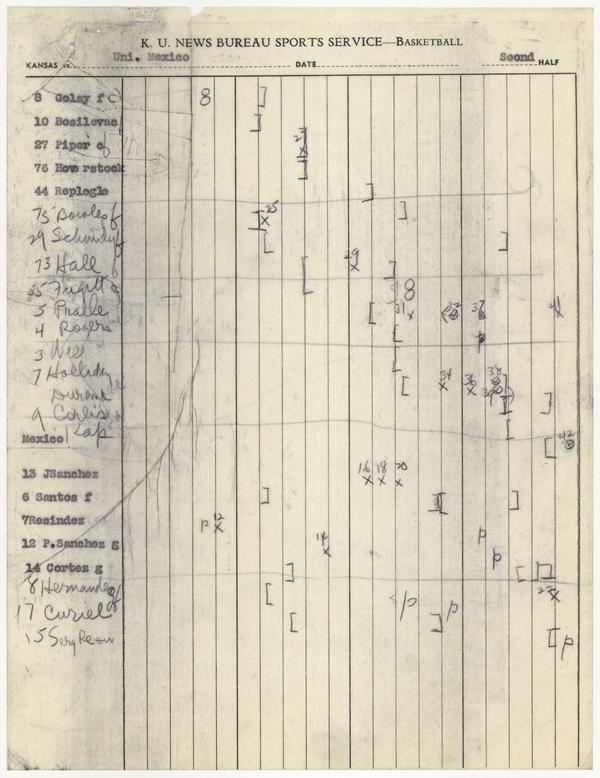 K. U. NEWS BUREAU SPORTS SERVICE—BASKETBALL
KANSAS vs. Uni. Mexico DATE Seond HALF
8 Golay f C 8
10 Bosilevac
27 Piper c 27
76 Hoverstock
44 Replogle
75 Bowles f 25
29 Schmidt f
73 Hall f 29
55 Fugitt c 8
5 Pralle 31 32 37 41
4 Rogers p
3 Weil
7 Holliday 34 36 38
Durand 39
9 Corlis
Kap
Mexico 42
13 JSanchez 16 18 20
6 Santos f
7Resindez p 12
12 P.Sanchez g 14 p
14 Cortez g p
8 Hernandez g 22
17 Curiel p p
15 p